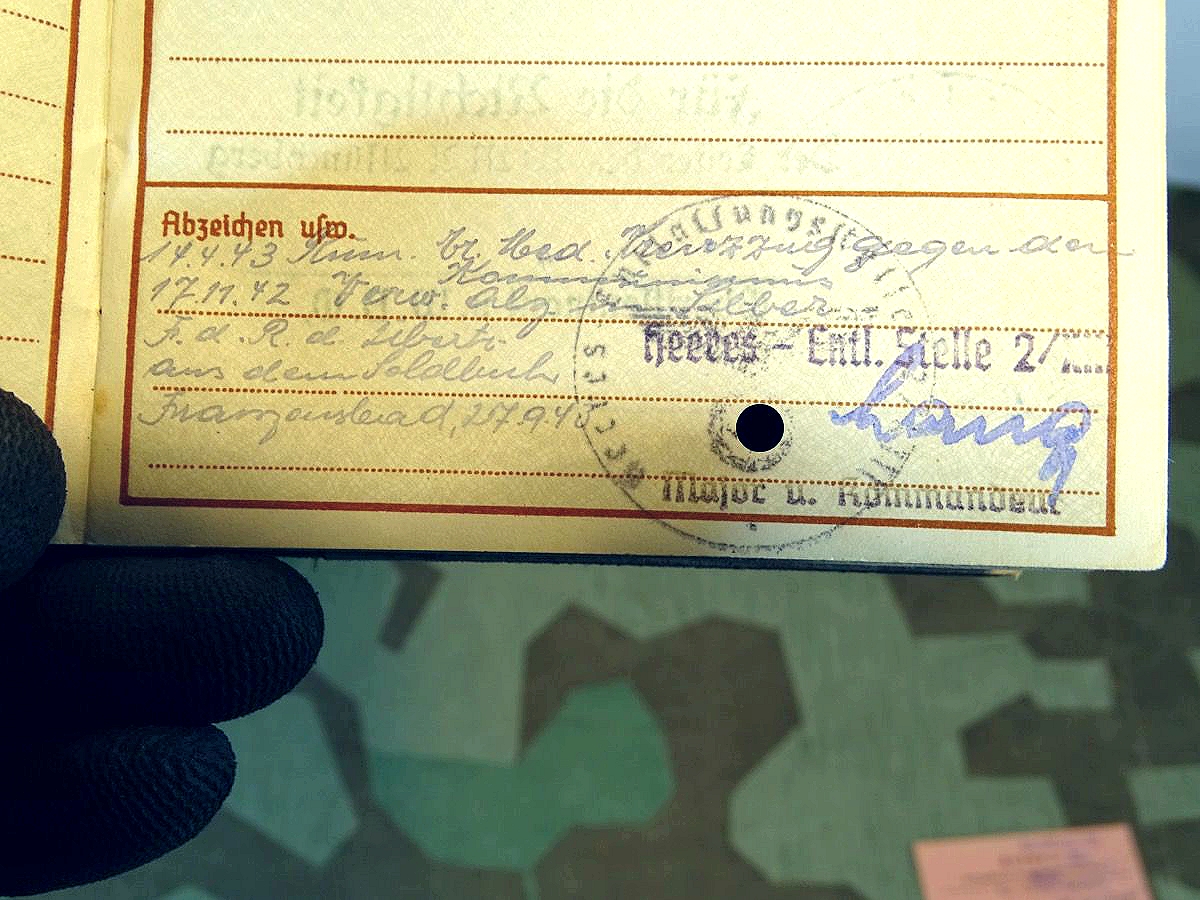 Abzeichen usw.
14.4.43 Rum. Er. Med. Kreuzzug gegen den
Kommunismus
17.11.42 Verw. Abz. in Silber
F. d. R. d. Übertr.
aus dem Soldbuch
Franzensbad, 27.9.43
Heeres - Entl. Stelle 2/
Lang
Major u. Kommandant